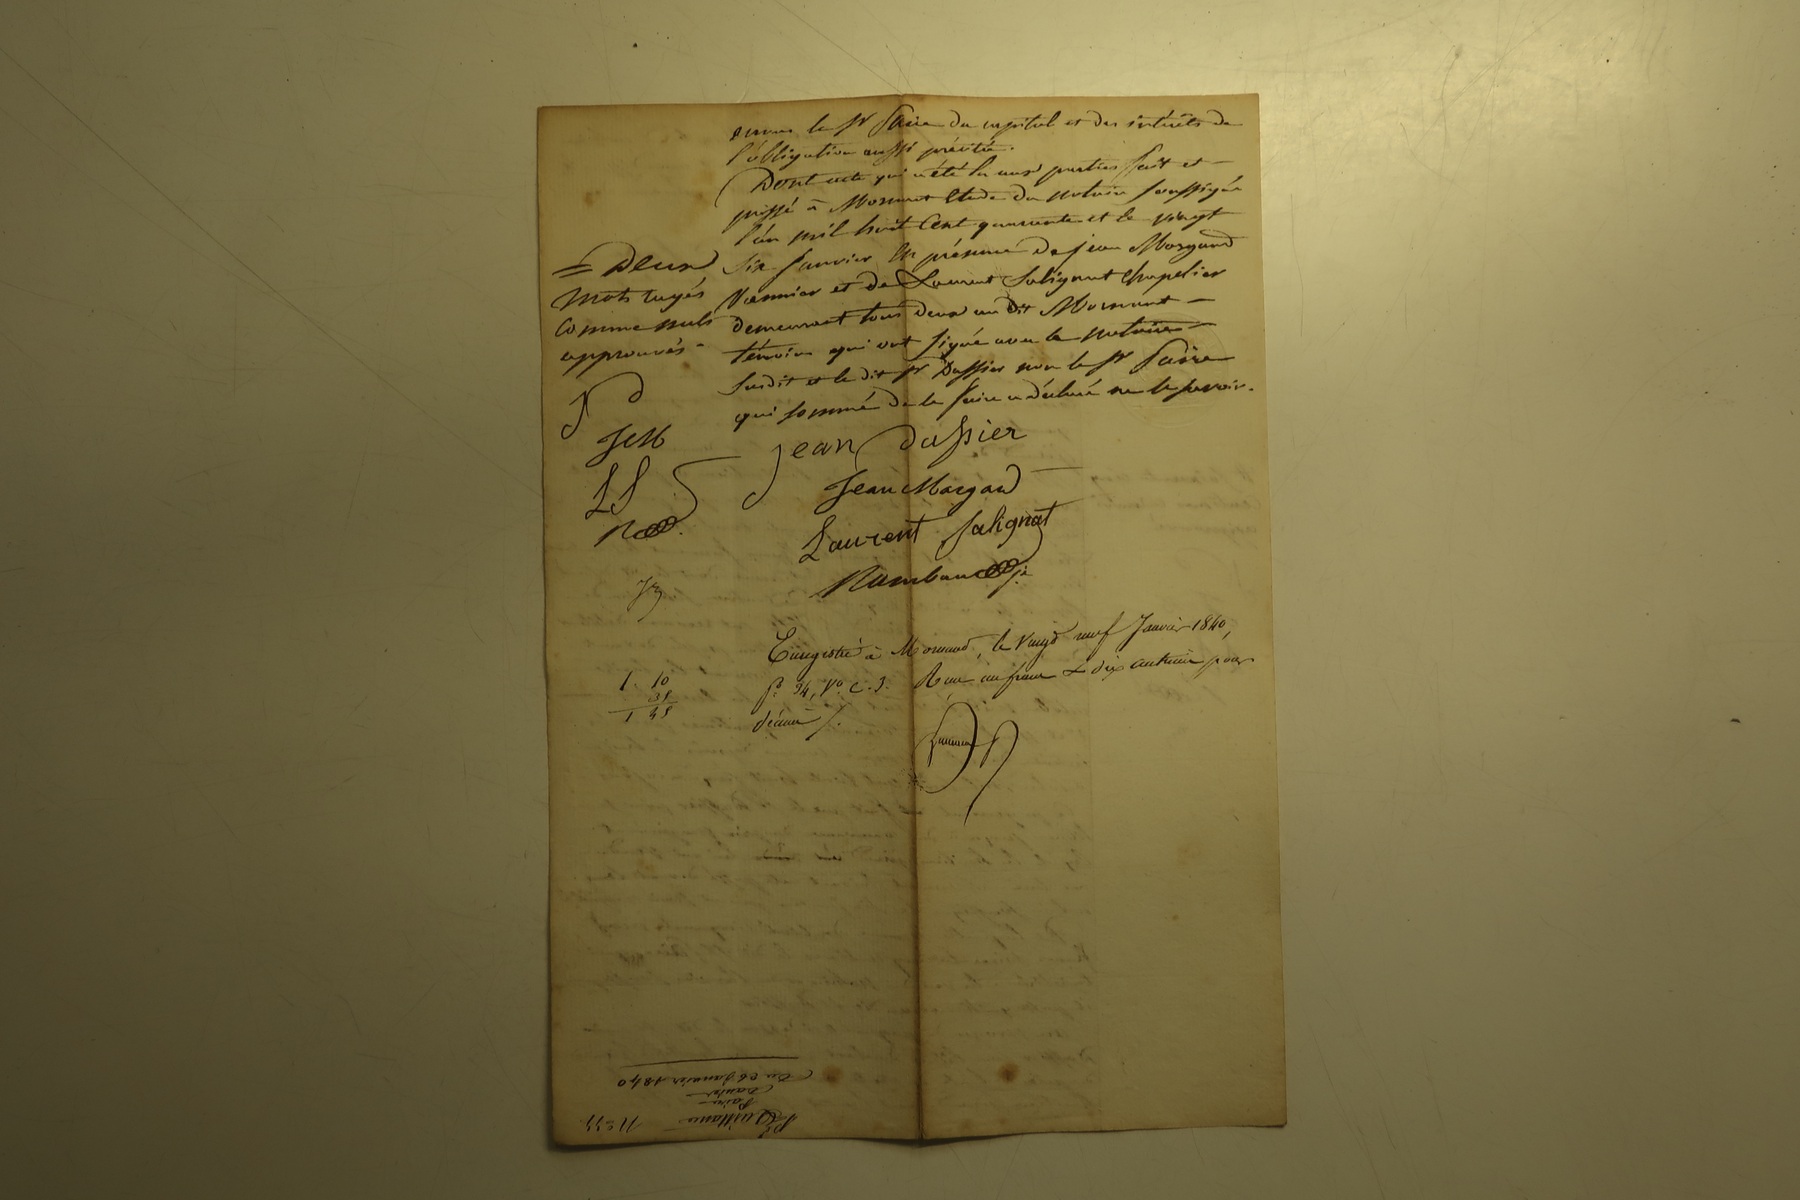 envers le Sr Faure du capital et des intérêts de
l'obligation aussi précitée.
Dont acte qui a été lu aux parties fait et
passé à Mornant Etude du notaire soussigné
l'an mil huit cent quarante et le vingt
six Janvier En présence de Jean Margand
Vannier et de Laurent Salignat Chapelier
demeurant tous deux au dit Mornant
témoins qui ont signé avec le notaire
susdit et le dit Sr Dassier non le Sr
qui sommé de le faire a déclaré ne le savoir.
= Deux
mots rayés
comme nuls
approuvés
J D
JeM
LS
Jean dassier
Jean Margand
Laurent Salignat
Enregistré à Mornand, le Vingt neuf Janvier 1840,
fo. 94, Vo. c. 3. Reçu un franc & dix centimes pour
décime /.
1. 10
35
1 45
Du 26 Janvier 1840
Quittance